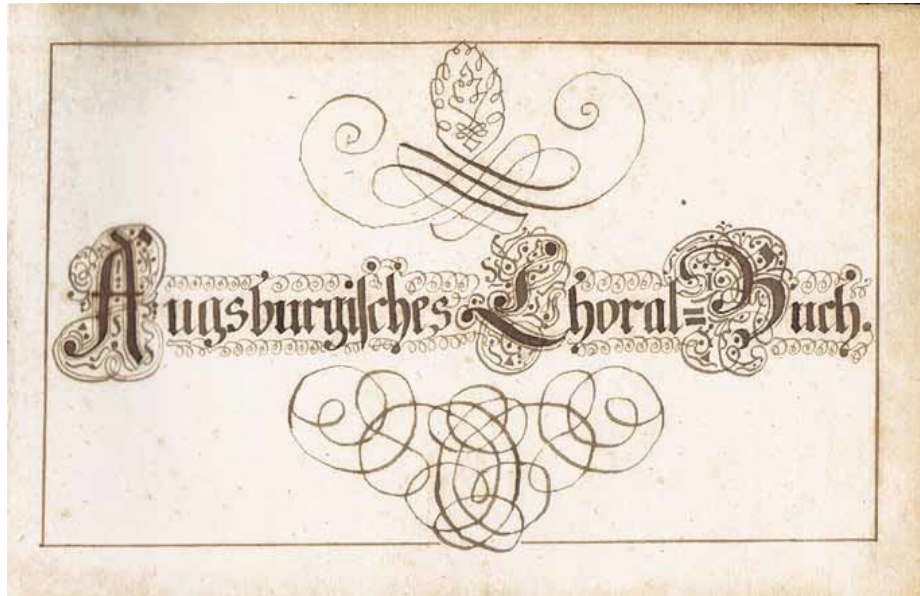 Augsburgisches Choral=Buch.